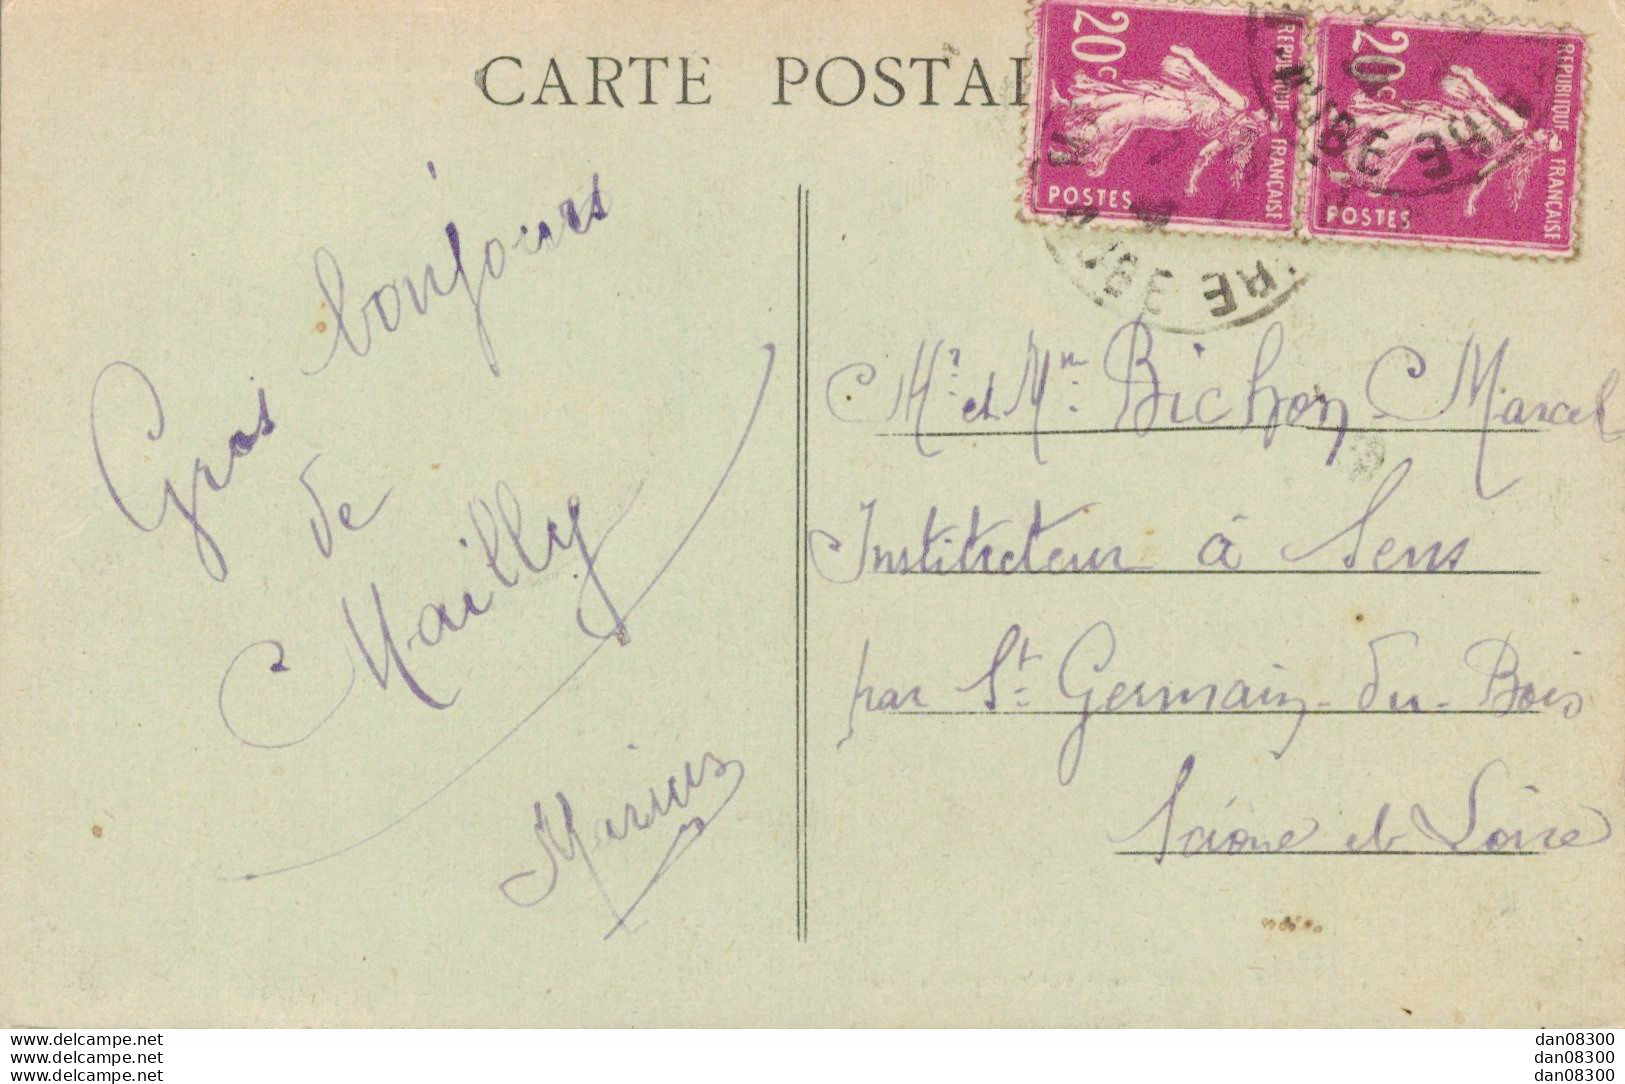 CARTE POSTAL
20c
REPUBLIQUE FRANÇAISE
POSTES
20c
REPUBLIQUE FRANÇAISE
POSTES
AUBE
AUBE
Gros bonjours
de
Mailly
Marius
Mr. et Mme. Bichon Marcel
Instituteur à Sens
par St. Germain-du-Bois
Saône et Loire
www.delcampe.net
www.delcampe.net
www.delcampe.net
dan08300
dan08300
dan08300